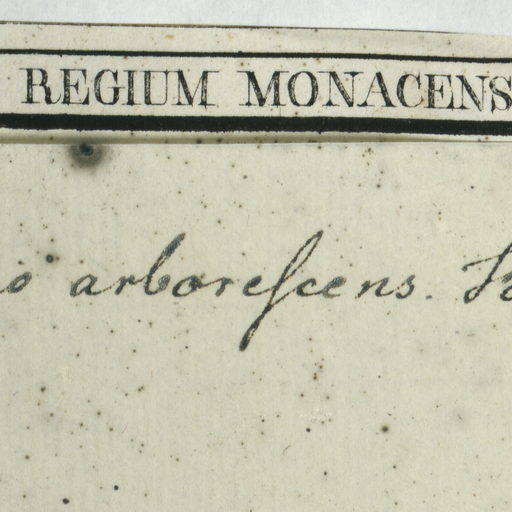 REGIUM MONACENS
arborescens.